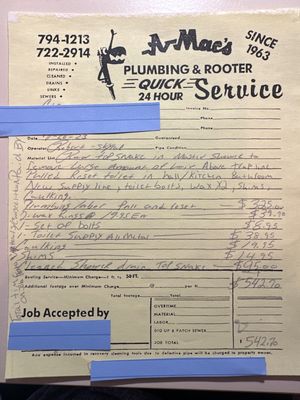 794-1213
722-2914
A-Mac's
SINCE
1963
INSTALLED •
REPAIRED •
CLEANED •
DRAINS •
SINKS •
SEWERS •
PLUMBING & ROOTER
QUICK
24 HOUR
Service
Invoice No.
Guaranteed
Operator
Pipe Condition
Material List Clear Top Snake in Master Shower to
Remove
Above
Pulled & Reset toilet in hall/kitchen Bathroom
New Supply line, toilet bolts, wax, Shims,
Caulking.
Plumbing labor Pull and Reset $325.00
2-wax Rings @ 19.95 EA $39.90
1-Set of bolts $5.95
1-Toilet Supply All Metal $38.95
Caulking $19.95
Shims $14.95
Cleared Shower drain Top Snake $95.00
Rooting Service—Minimum Charge—1 ft. to 50-FT.
Additional footage over Minimum Charge
$542.70
Total footage
Total
Job Accepted by
OVERTIME
MATERIAL
LABOR
DIG UP & PATCH SEWER
JOB TOTAL
$542.70
Any expense incurred in recovery cleaning tools due to defective pipe will be charged to property owner.